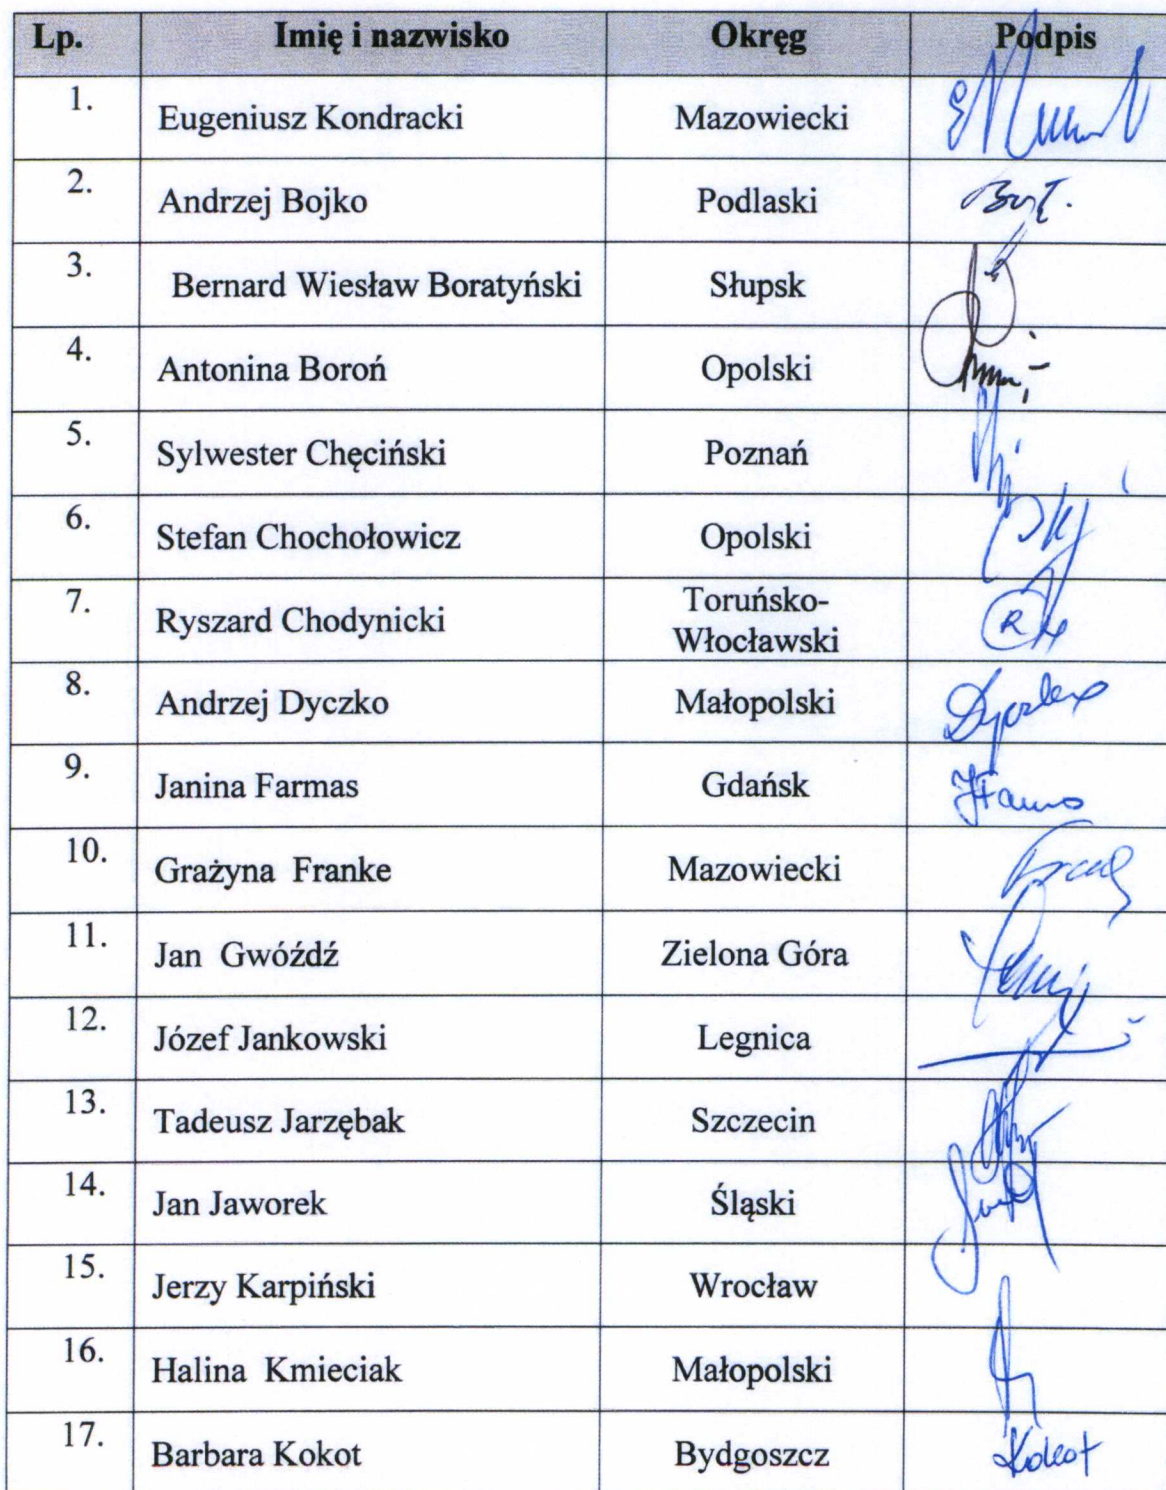 Lp. Imię i nazwisko Okręg Podpis
1. Eugeniusz Kondracki Mazowiecki
2. Andrzej Bojko Podlaski
3. Bernard Wiesław Boratyński Słupsk
4. Antonina Boroń Opolski
5. Sylwester Chęciński Poznań
6. Stefan Chochołowicz Opolski
7. Ryszard Chodynicki Toruńsko-
Włocławski
8. Andrzej Dyczko Małopolski
9. Janina Farmas Gdańsk
10. Grażyna Franke Mazowiecki
11. Jan Gwóźdź Zielona Góra
12. Józef Jankowski Legnica
13. Tadeusz Jarzębak Szczecin
14. Jan Jaworek Śląski
15. Jerzy Karpiński Wrocław
16. Halina Kmieciak Małopolski
17. Barbara Kokot Bydgoszcz Kokot